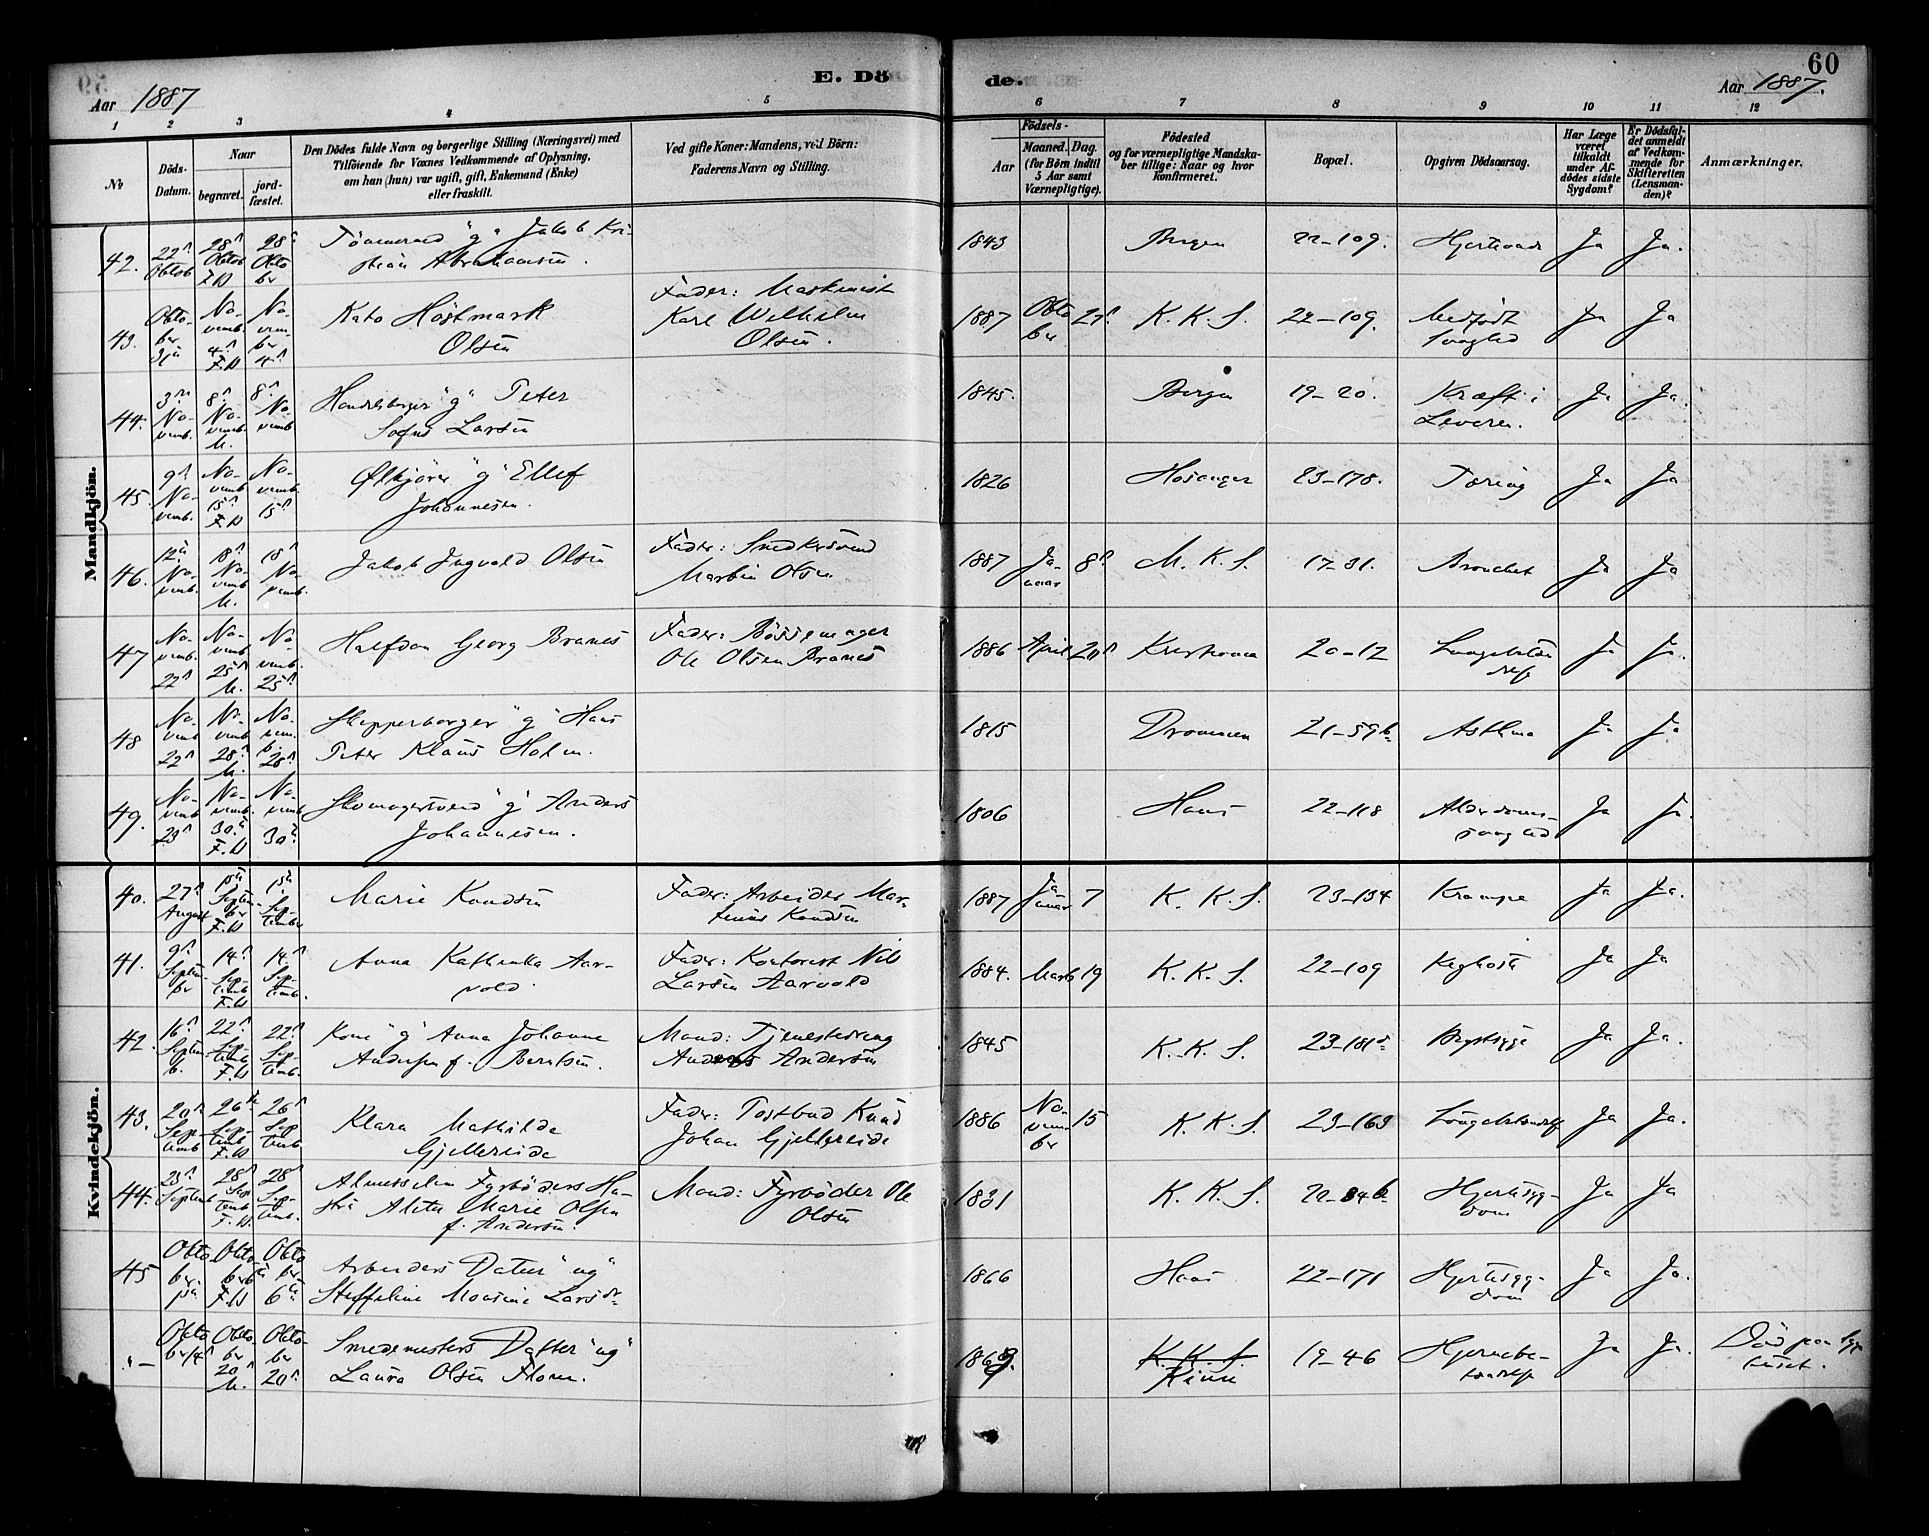 60
Aar 1887
E. Dö
de.
Aar 1887.
1
2
3
4
5
6
7
8
9
10
11
12
No
Döds-
Datum.
Naar
begravet.
jord-
fæstet.
Den Dödes fulde Navn og borgerlige Stilling (Næringsvei) med
Tilföiende for Voxnes Vedkommende af Oplysning,
om han (hun) var ugift, gift, Enkemand (Enke)
eller fraskilt.
Ved gifte Koner: Mandens, ved Börn:
Faderens Navn og Stilling.
Födsels-
Aar
Maaned. Dag.
(for Börn indtil
5 Aar samt
Værnepligtige).
Födested
og for værnepligtige Mandska-
ber tillige: Naar og hvor
konfirmeret.
Bopæl.
Opgiven Dödsaarsag.
Har Læge
været
tilkaldt
under Af-
dödes sidste
Sygdom?
Er Dödsfal-
det anmeldt
af Vedkom-
mende for
Skifteretten
(Lensman-
den)?
Anmærkninger.
Mandkjön.
42.
22
Oktob
28
Oktob
F.H
28
Okto
ber
"g" Jakob Kri-
stian Abrahamsen.
1843
Bergen
22-109.
Ja
Ja.
43.
Okto-
ber
No-
vemb
4
F.H
No-
vem-
ber
4
Kato Höstmark
Olsen
Fader: Maskinist
Karl Wilhelm
Olsen.
1887
Okto
ber
K. K. S.
22-109.
Medfödt
svaghed
Ja
Ja
44.
3
No-
vemb.
8
No-
vemb.
M.
8
No-
vemb
Handelsborger "g" Peter
Sofus Larsen
1845.
Bergen
19-20.
Kræft i
Leveren.
Ja
Ja.
45.
9
No-
vemb.
No-
vemb
15
F.H
No-
vemb.
15
Ølkjører "g" Ellef
Johannesen.
1826
Hosanger
23-178.
Tæring
Ja
Ja
46.
12
No-
vemb.
18
No-
vemb
M.
18
No-
vemb.
Jakob Ingvald Olsen
Fader: Snedkersvend
Martin Olsen
1887
Ja-
nuar
8
M. K. S.
17-31.
Bronchit
Ja
Ja
47
No-
vemb.
22
No-
vemb
25
M.
No-
vemb.
25
Halfdan Georg Branes
Fader: Bössemager
Ole Olsen Branes
1886
April
20
Kristiania
20-12
Ja
Ja.
48
No-
vemb
22
No-
vemb
28
M.
No-
vem-
b.
28
Skipperborger "g" Hans
Peter Klaus Holm.
1815
Drammen
21-59b
Asthma
Ja
Ja
49.
No-
vemb
23
No-
vemb.
30
F.H
No-
vemb
30
Skomagersvend "g" Anders
Johannesen.
1806
Haus
22-118
Alderdoms-
svaghed
Ja
Ja.
Kvindekjön.
40.
27
August
15
Septem-
ber
F.H
15
Sep-
tember
Marie Knudsen
Fader: Arbeider Mar-
tinus Knudsen
1887
Ja
nuar
7
K. K. S.
23-134
Krampe
Ja
Ja.
41.
9
Septem-
br
14
Sep-
temb
F.H
14
Sep-
temb.
Anna Kathinka Aar-
vold.
Fader: Kontorist Nils
Larsen Aarvold
1884.
Marts
19
K. K. S.
22-109
Kighoste
Ja
Ja
42.
16
Septem-
b.
22
Sep-
temb
F.H
22
Sep-
temb.
Kone "g" Anna Johanne
Andersen f. Berntsen.
Mand: Tjenestedreng
Anders Andersen
1845
K. K. S.
Brystsyge
Ja
Ja.
43.
20
Sep-
temb
26
Sep-
temb
F.H
26
Sep-
temb
Klara Mathilde
Gjellereide
Fader: Postbud Knud
Johan Gjellereide
1886
No-
vem-
ber
15
K. K. S.
23-163
Ja
Ja.
44.
23
Septemb
28
Sep-
temb
F.H.
28
Sep-
temb.
Almisselem Fyrböders Hu-
stru Marie Olsen
f. Andersen.
Mand: Fyrböder Ole
Olsen
1831
K. K. S.
Hjertesyg-
dom
Ja
Ja
45
Okto
ber
Okto
ber 6
F.H
Okto
ber
6
Arbeiders Datter "ug"
Steffeline Monsine Larsdr
1866
Haus
22-171
Hjertesyg-
dom
Ja
Ja.
"-
Okto
ber 14
Okto-
ber
20
M.
Okto-
ber
20
Smedemesters Datter "ug"
Laura Olsen Flom.
K. K. S.
Kinn
19-46
Hjernebe-
tændelse
Ja
Ja.
Död paa Syge
huset.